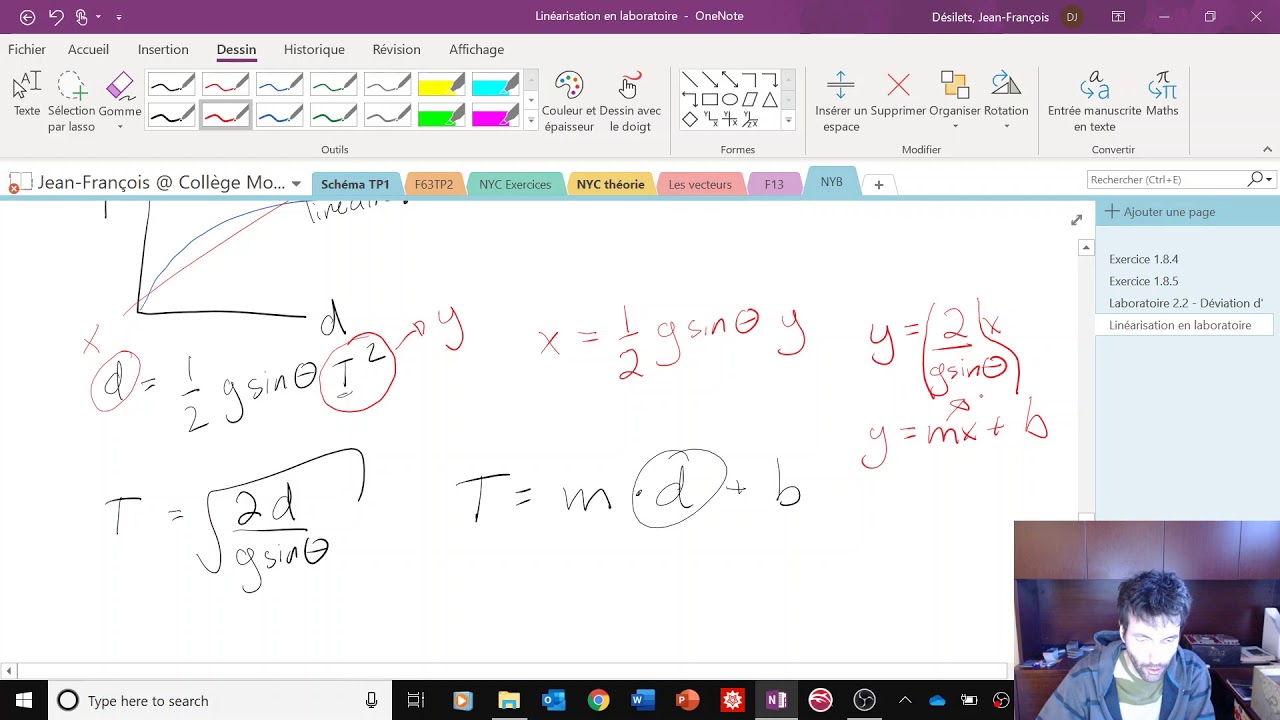 Linéarisation en laboratoire - OneNote
Désilets, Jean-François DJ
Fichier Accueil Insertion Dessin Historique Révision Affichage
Texte Sélection par lasso Gomme
Couleur et épaisseur Dessin avec le doigt
Insérer un espace Supprimer Organiser Rotation
Entrée manuscrite en texte Maths
Outils Formes Modifier Convertir
Jean-François @ Collège Mo... Schéma TP1 F63TP2 NYC Exercices NYC théorie Les vecteurs F13 NYB
Rechercher (Ctrl+E)
Ajouter une page
Exercice 1.8.4
Exercice 1.8.5
Laboratoire 2.2 - Déviation d'
Linéarisation en laboratoire
d
x
y
d = 1/2 g sinθ T²
x = 1/2 g sinθ y
y = (2/g sinθ) x
y = mx + b
T = √(2d/g sinθ)
T = m · d + b
Type here to search